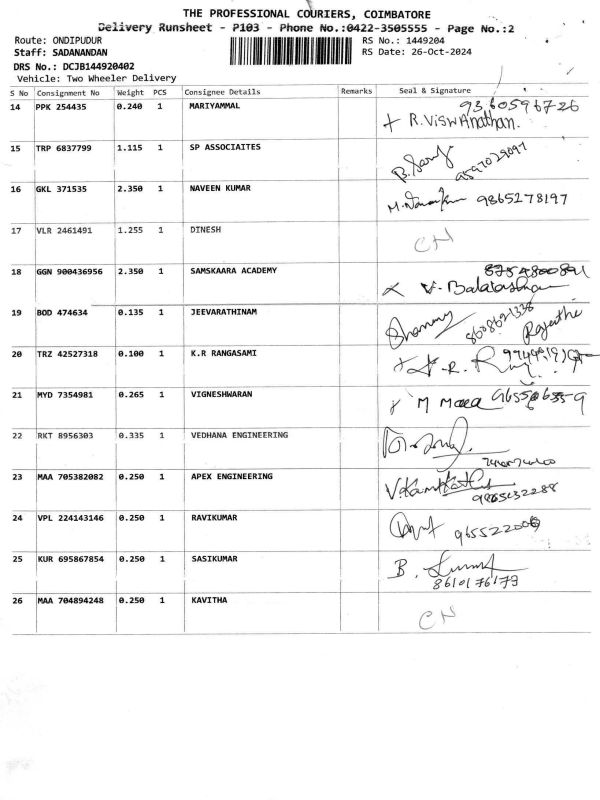 THE PROFESSIONAL COURIERS, COIMBATORE
Delivery Runsheet - P103 - Phone No.:0422-3505555 - Page No.:2
Route: ONDIPUDUR RS No.: 1449204
Staff: SADANANDAN RS Date: 26-Oct-2024
DRS No.: DCJB144920402
Vehicle: Two Wheeler Delivery
S No Consignment No Weight PCS Consignee Details Remarks Seal & Signature
14 PPK 254435 0.240 1 MARIYAMMAL 9360596726
R. Viswanathan.
15 TRP 6837799 1.115 1 SP ASSOCIAITES
16 GKL 371535 2.350 1 NAVEEN KUMAR 9865278197
17 VLR 2461491 1.255 1 DINESH CN
18 GGN 900436956 2.350 1 SAMSKAARA ACADEMY
19 BOD 474634 0.135 1 JEEVARATHINAM
20 TRZ 42527318 0.100 1 K.R RANGASAMI
21 MYD 7354981 0.265 1 VIGNESHWARAN
22 RKT 8956303 0.335 1 VEDHANA ENGINEERING
23 MAA 705382082 0.250 1 APEX ENGINEERING
24 VPL 224143146 0.250 1 RAVIKUMAR
25 KUR 695867854 0.250 1 SASIKUMAR B.
8610176173
26 MAA 704894248 0.250 1 KAVITHA CN